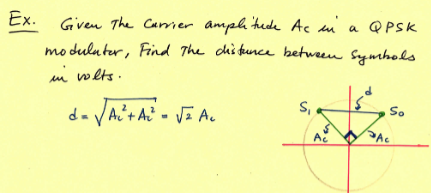 Ex. Given The Carrier amplitude Ac in a QPSK
modulator, Find The distance between symbols
in volts.
d = √Ac² + Ac² = √2 Ac
d
S₁ S₀
Ac Ac